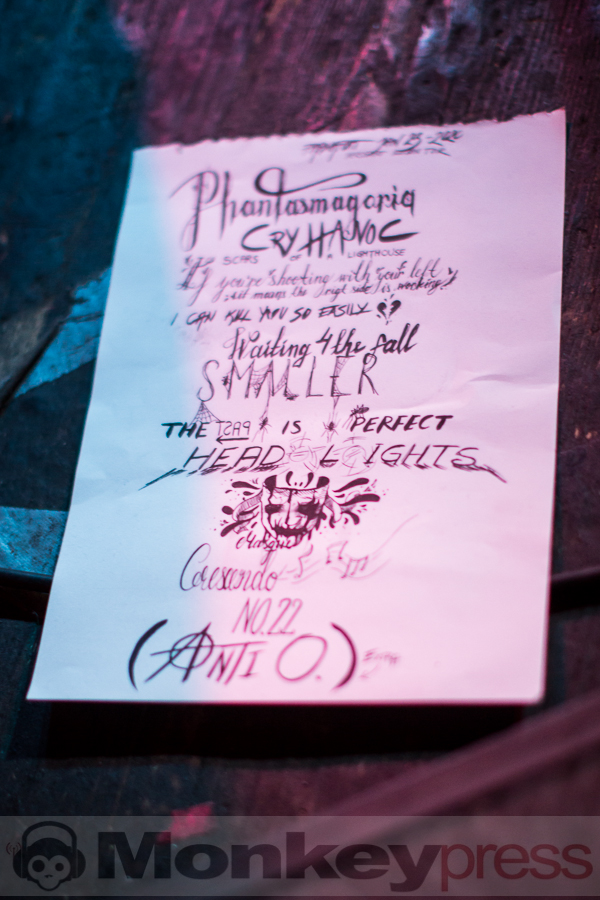 2020
Phantasmagoria
CRY HAVOC
SCARS OF A LIGHTHOUSE
If you're shooting with your left
it means the right side is working?
I CAN KILL YOU SO EASILY
Waiting 4 the fall
SMALLER
THE PAST IS PERFECT
HEADLIGHTS
Masque
Crescendo
NO.22
(ANTI O.)
Monkeypress